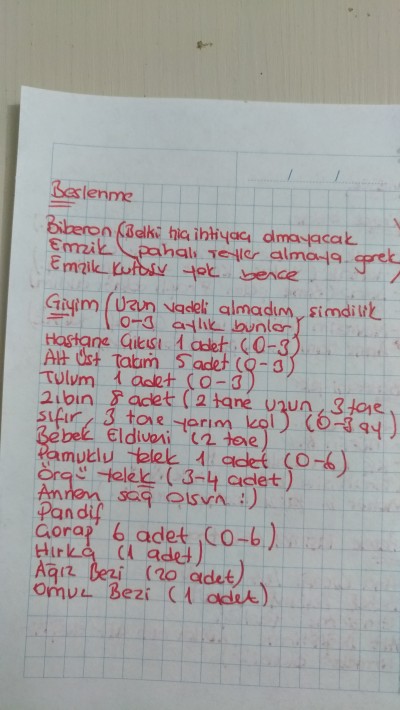 / /
Beslenme
Biberon (Belki hiç ihtiyacı olmayacak
Emzik pahalı şeyler almaya gerek
Emzik kutusu yok bence )
Giyim (Uzun vadeli almadım, şimdilik
0-3 aylık bunlar)
Hastane Çıkışı 1 adet (0-3)
Alt Üst Takım 5 adet (0-3)
Tulum 1 adet (0-3)
Zıbın 8 adet (2 tane uzun, 3 tane
sıfır, 3 tane yarım kol) (0-3 ay)
Bebek Eldiveni (2 tane)
Pamuklu Yelek 1 adet (0-6)
Örgü Yelek (3-4 adet)
Annem sağ olsun :)
Pandif
Çorap 6 adet (0-6)
Hırka (1 adet)
Ağız Bezi (20 adet)
Omuz Bezi (1 adet)